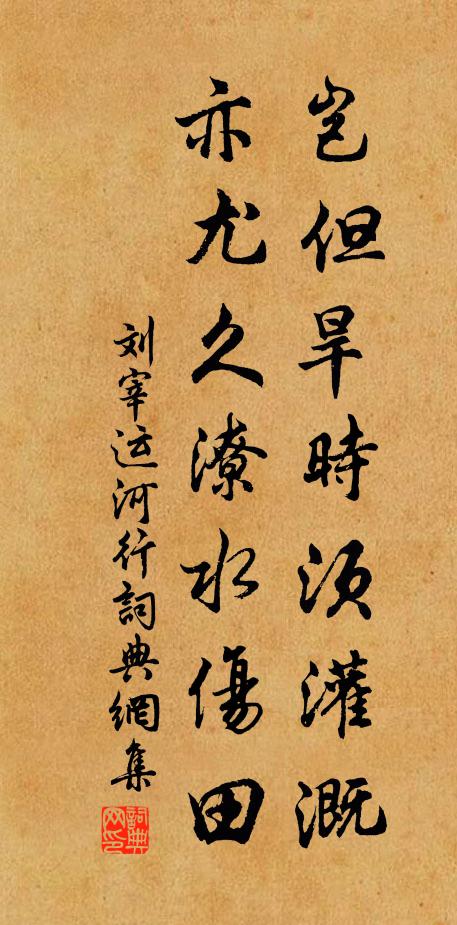 岂但旱時须灌溉
亦尤久潦水傷田
刘宰运河行詞典網集
詞典网印